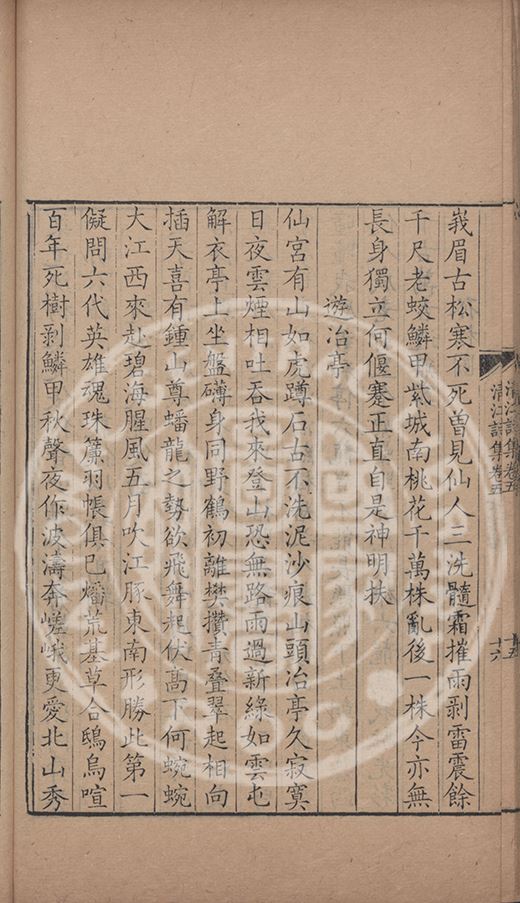 峩眉古松寒不死曽見仙人三洗髓霜摧雨剥雷震餘
千尺老蛟鱗甲紫城南桃花千萬株亂後一株今亦無
長身獨立何偃蹇正直自是神明扶
遊冶亭
仙宮有山如虎蹲石古不洗泥沙痕山頭冶亭久寂寞
日夜雲煙相吐吞我來登山恐無路雨過新綠如雲屯
解衣亭上坐盤礴身同野鶴初離樊攢青叠翠起相向
插天喜有鍾山尊蟠龍之勢欲飛舞起伏髙下何蜿蜿
大江西來赴碧海腥風五月吹江豚東南形勝此第一
儗問六代英雄魂珠簾羽帳俱已燼荒基草合鴟烏喧
百年死樹剥鱗甲秋聲夜作波濤奔嵯峨更愛北山秀
清江詩集卷五
十六